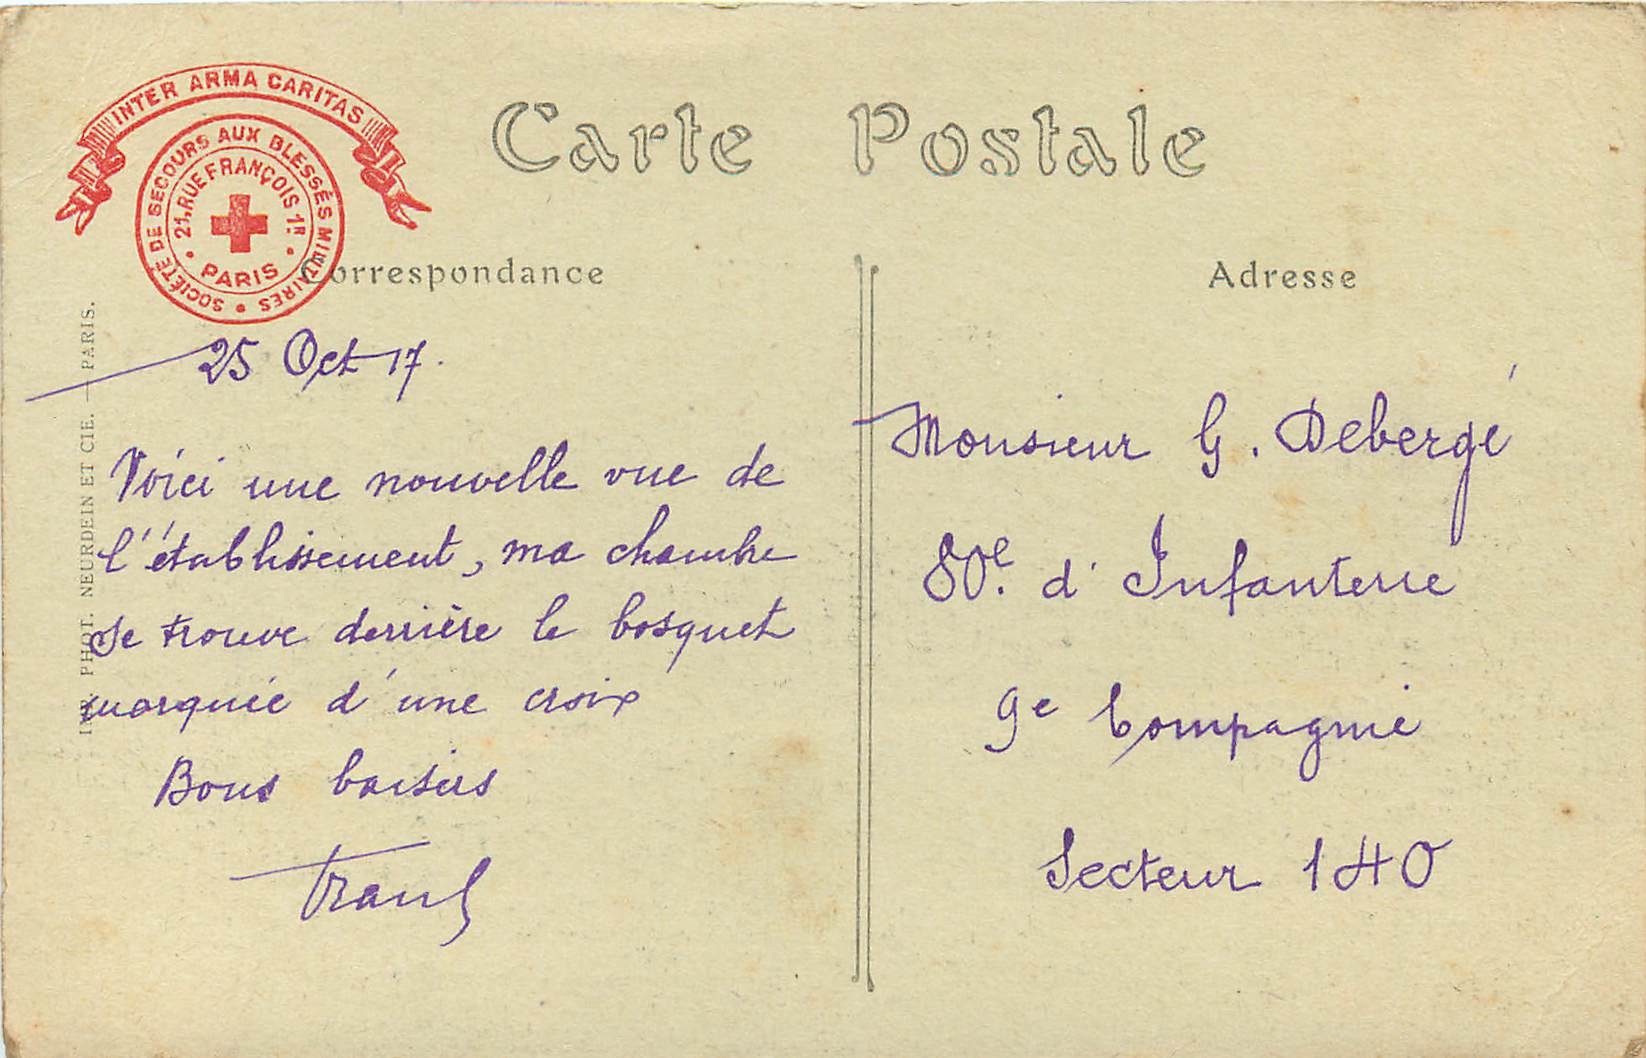 INTER ARMA CARITAS
SOCIÉTÉ DE SECOURS AUX BLESSÉS MILITAIRES
21, RUE FRANÇOIS 1ᴿ
PARIS
Carte Postale
Correspondance
25 Oct 17.
Voici une nouvelle vue de
l'établissement, ma chambre
se trouve derrière le bosquet
marquée d'une croix
Bons baisers
Adresse
Monsieur G. Debergé
80e. d'Infanterie
9e Compagnie
Secteur 140
IMP. PHOT. NEURDEIN ET CIE. — PARIS.